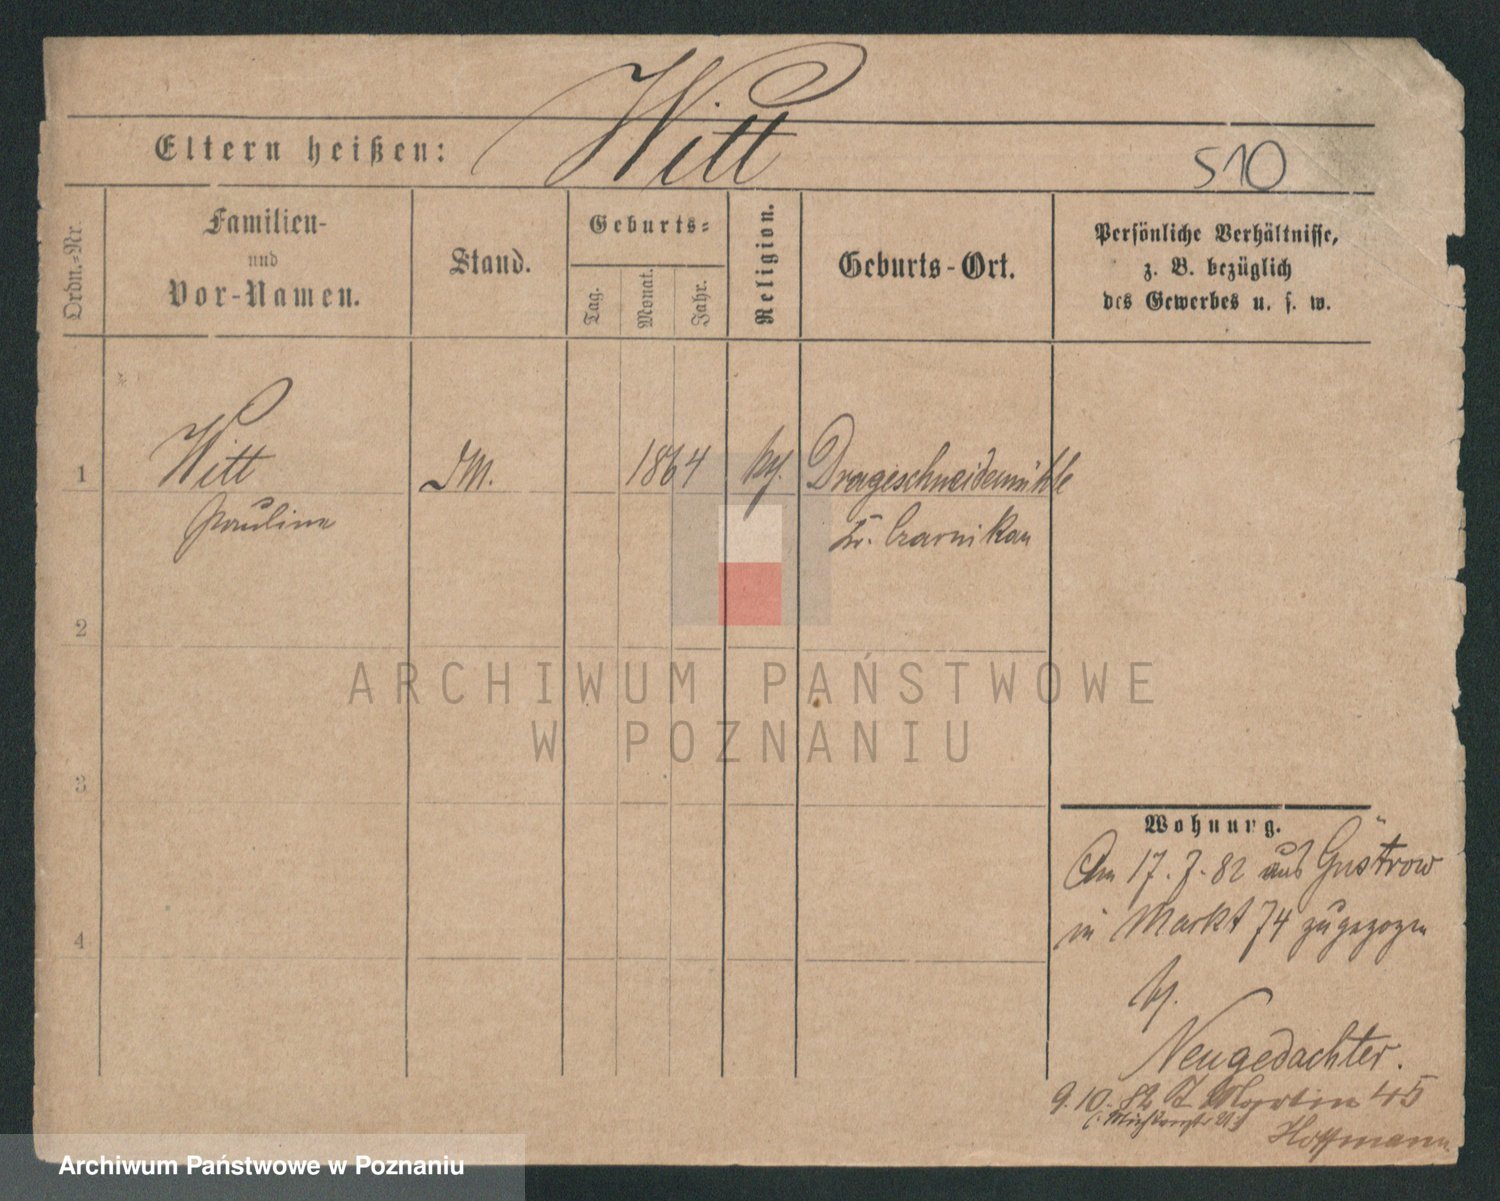 Witt
Eltern heißen:
510
Ordn.-Nr.
Familien-
und
Vor-Namen.
Stand.
Geburts-
Tag.
Monat.
Jahr.
Religion.
Geburts-Ort.
Persönliche Verhältnisse,
z. B. bezüglich
des Gewerbes u. s. w.
1
Witt
Pauline
DM.
1864
Drageschneidemühle
Kr. Czarnikau
2
ARCHIWUM PAŃSTWOWE
W POZNANIU
3
4
Wohnung.
Am 17. 7. 82 aus Güstrow
in Markt 74 zugezogen
bei
Neugedachter.
9. 10. 82 St Martin 45
Hoffmann
Archiwum Państwowe w Poznaniu